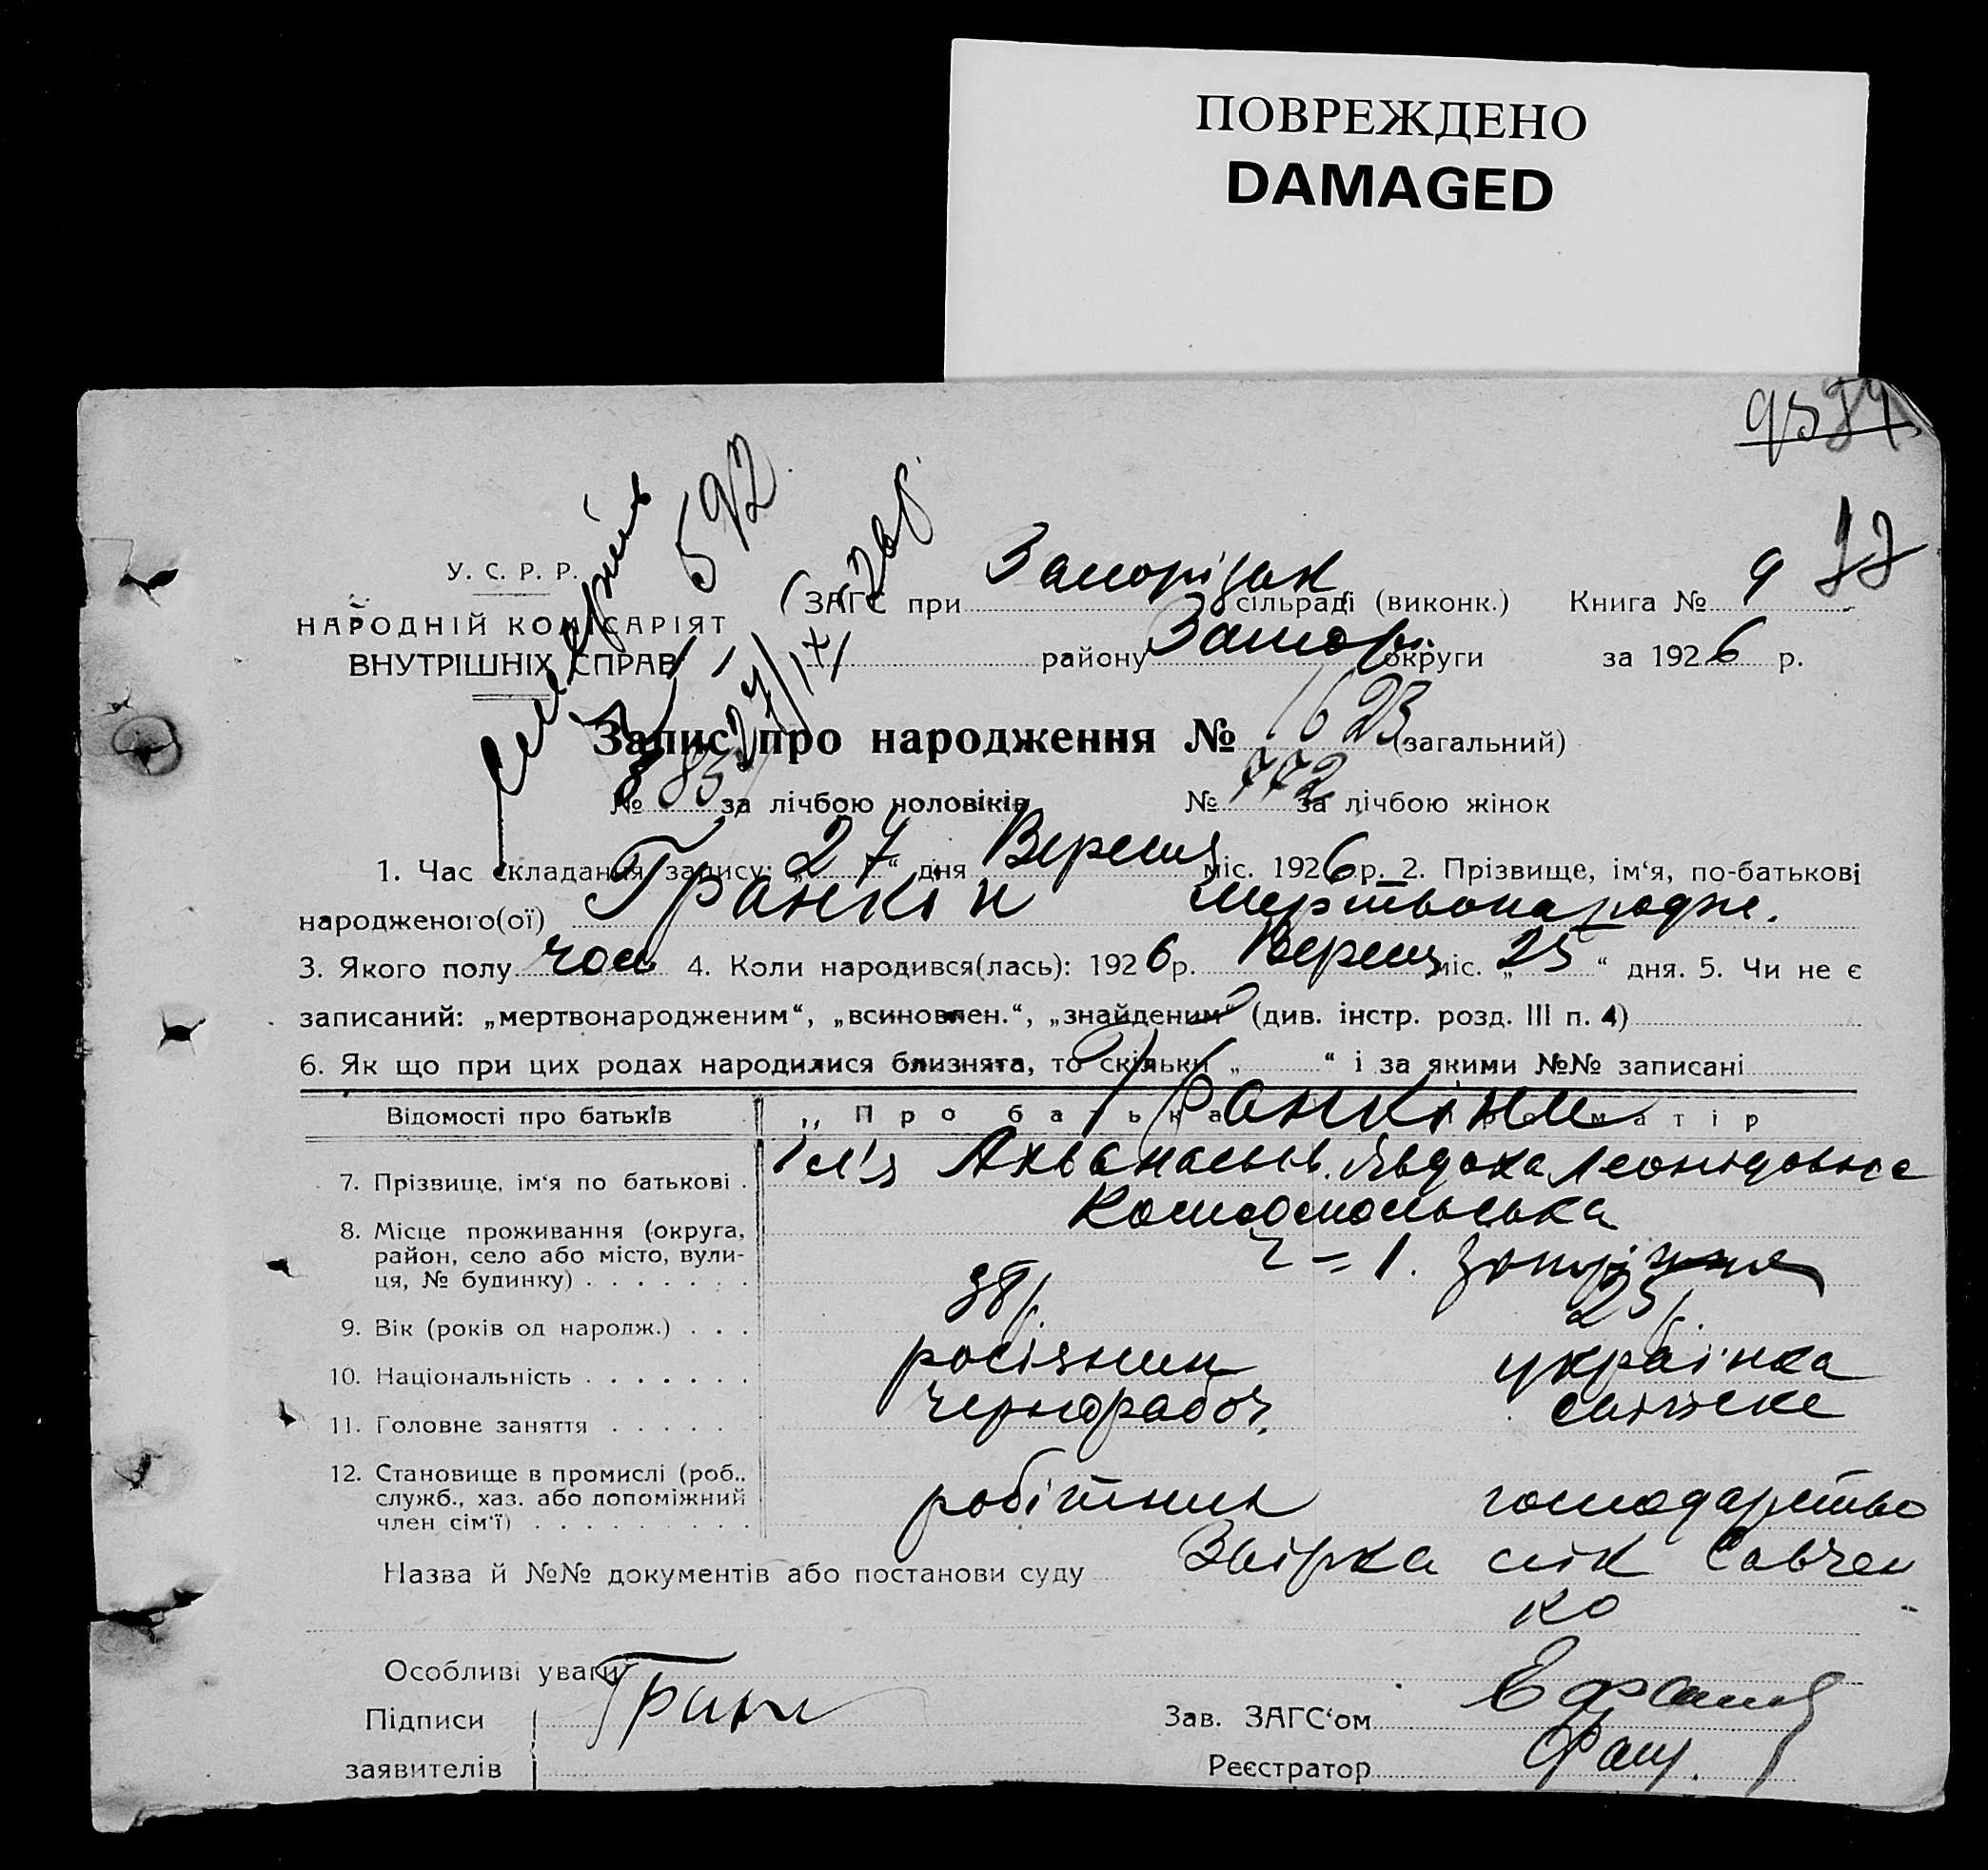 ПОВРЕЖДЕНО
DAMAGED
592
У. С. Р. Р.
НАРОДНІЙ КОМІСАРІЯТ
ВНУТРІШНІХ СПРАВ
ЗАГС при Запоріжж сільраді (виконк.) Книга № 9
району Запор. округи за 1926 р.
Запис про народження № 1623 (загальний)
№ 85 за лічбою чоловіків № 772 за лічбою жінок
1. Час складання запису: „27“ дня Вересня міс. 1926 р. 2. Прізвище, ім‘я, по-батькові
народженого(ої) Гранкін мертвонародже.
3. Якого полу чол 4. Коли народився(лась): 1926 р. Вересня міс. „25“ дня. 5. Чи не є
записаний: „мертвонародженим“, „всиновлен.“, „знайденим“ (див. інстр. розд. III п. 4)
6. Як що при цих родах народилися близнята, то скільки „ “ і за якими №№ записані
Відомості про батьків Про батька Про матір
Гранкіни
7. Прізвище, ім‘я по батькові . Ілля Ахванасьів. Явдоха Леонідовна
8. Місце проживання (округа, Комсомольська
район, село або місто, вули-
ця, № будинку) . . . . . . . ч = 1. Запоріжжя
9. Вік (років од народж.) . . . 38 р. 25 р.
10. Національність . . . . . . . росіянин українка
11. Головне заняття . . . . . чернорабоч.
12. Становище в промислі (роб.,
служб., хаз. або допоміжний робітник господарство
член сім‘ї) . . . . . . . . .
Назва й №№ документів або постанови суду Звірка Савчен
ко
Особливі уваги
Підписи Зав. ЗАГС‘ом
заявителів Реєстратор